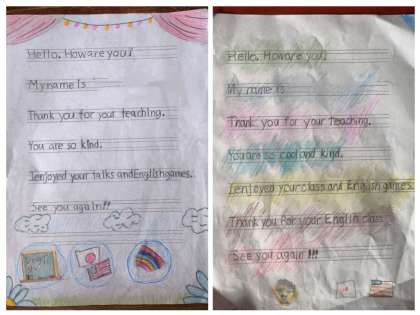 Hello. Howare you?
My name is
Thank you for your teaching.
You are so kind.
I enjoyed your talks and English games.
See you again!!
Hello. Howare you?
My name is
Thank you for your teaching.
You are so cool and kind.
I enjoyed your class and English games.
Thank you for your English class
See you again!!!